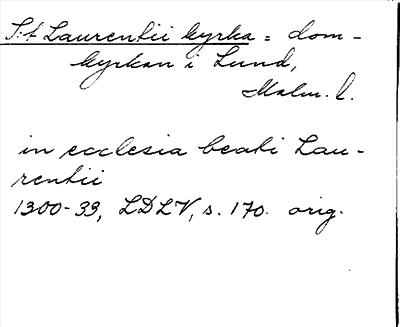 S:t Laurentii kyrka = dom-
kyrkan i Lund,
Malm. l.
in ecclesia beati Lau-
rentii
1300-33, LDLV, s. 170. orig.